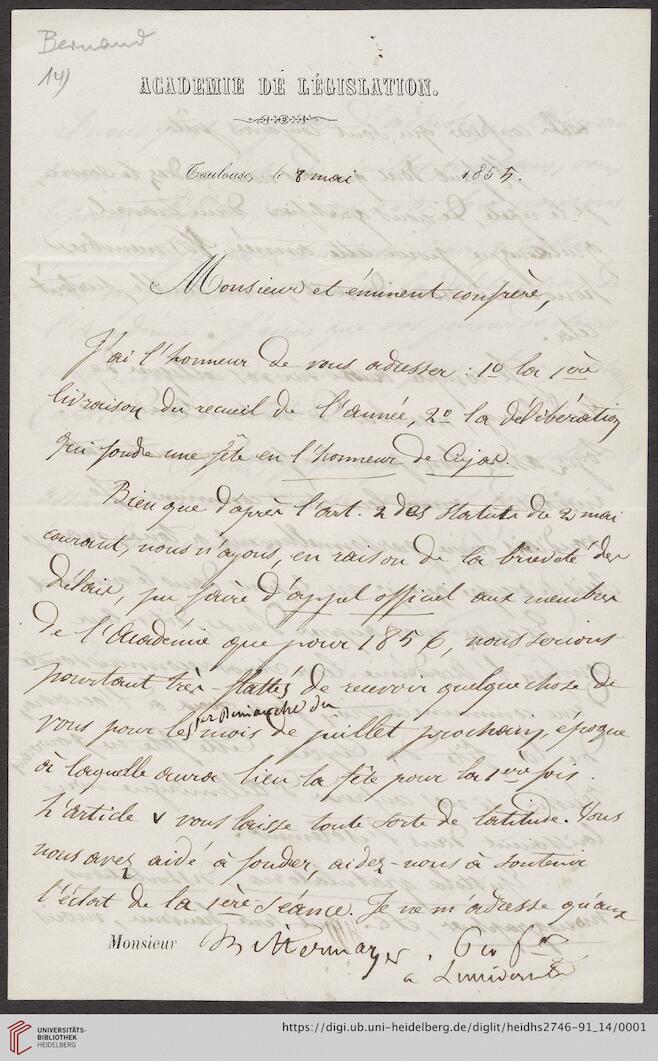 Bernard
14)
ACADEMIE DE LÉGISLATION.
Toulouse, le 8 mai 1855.
Monsieur et éminent confrère,
J'ai l'honneur de vous adresser : 1º la 1ère
livraison du recueil de l'année, 2º la délibération
qui fonde une fête en l'honneur de Cujas.
Bien que d'après l'art. 2 des statuts du 2 mai
courant, nous n'ayons, en raison de la brieveté des
délais, pu faire d'appel officiel aux membres
de l'Académie que pour 1856, nous serions
pourtant très-flattés de recevoir quelque chose de
vous pour le 1er Dimanche du mois de juillet prochain, époque
à laquelle aura lieu la fête pour la 1ère fois.
L'article V vous laisse toute sorte de latitude. Vous
nous avez aidé à fonder, aidez-nous à soutenir
l'éclat de la 1ère séance. Je ne m'adresse qu'aux
Monsieur Mittermayer,
à
UNIVERSITÄTS-
BIBLIOTHEK
HEIDELBERG
https://digi.ub.uni-heidelberg.de/diglit/heidhs2746-91_14/0001